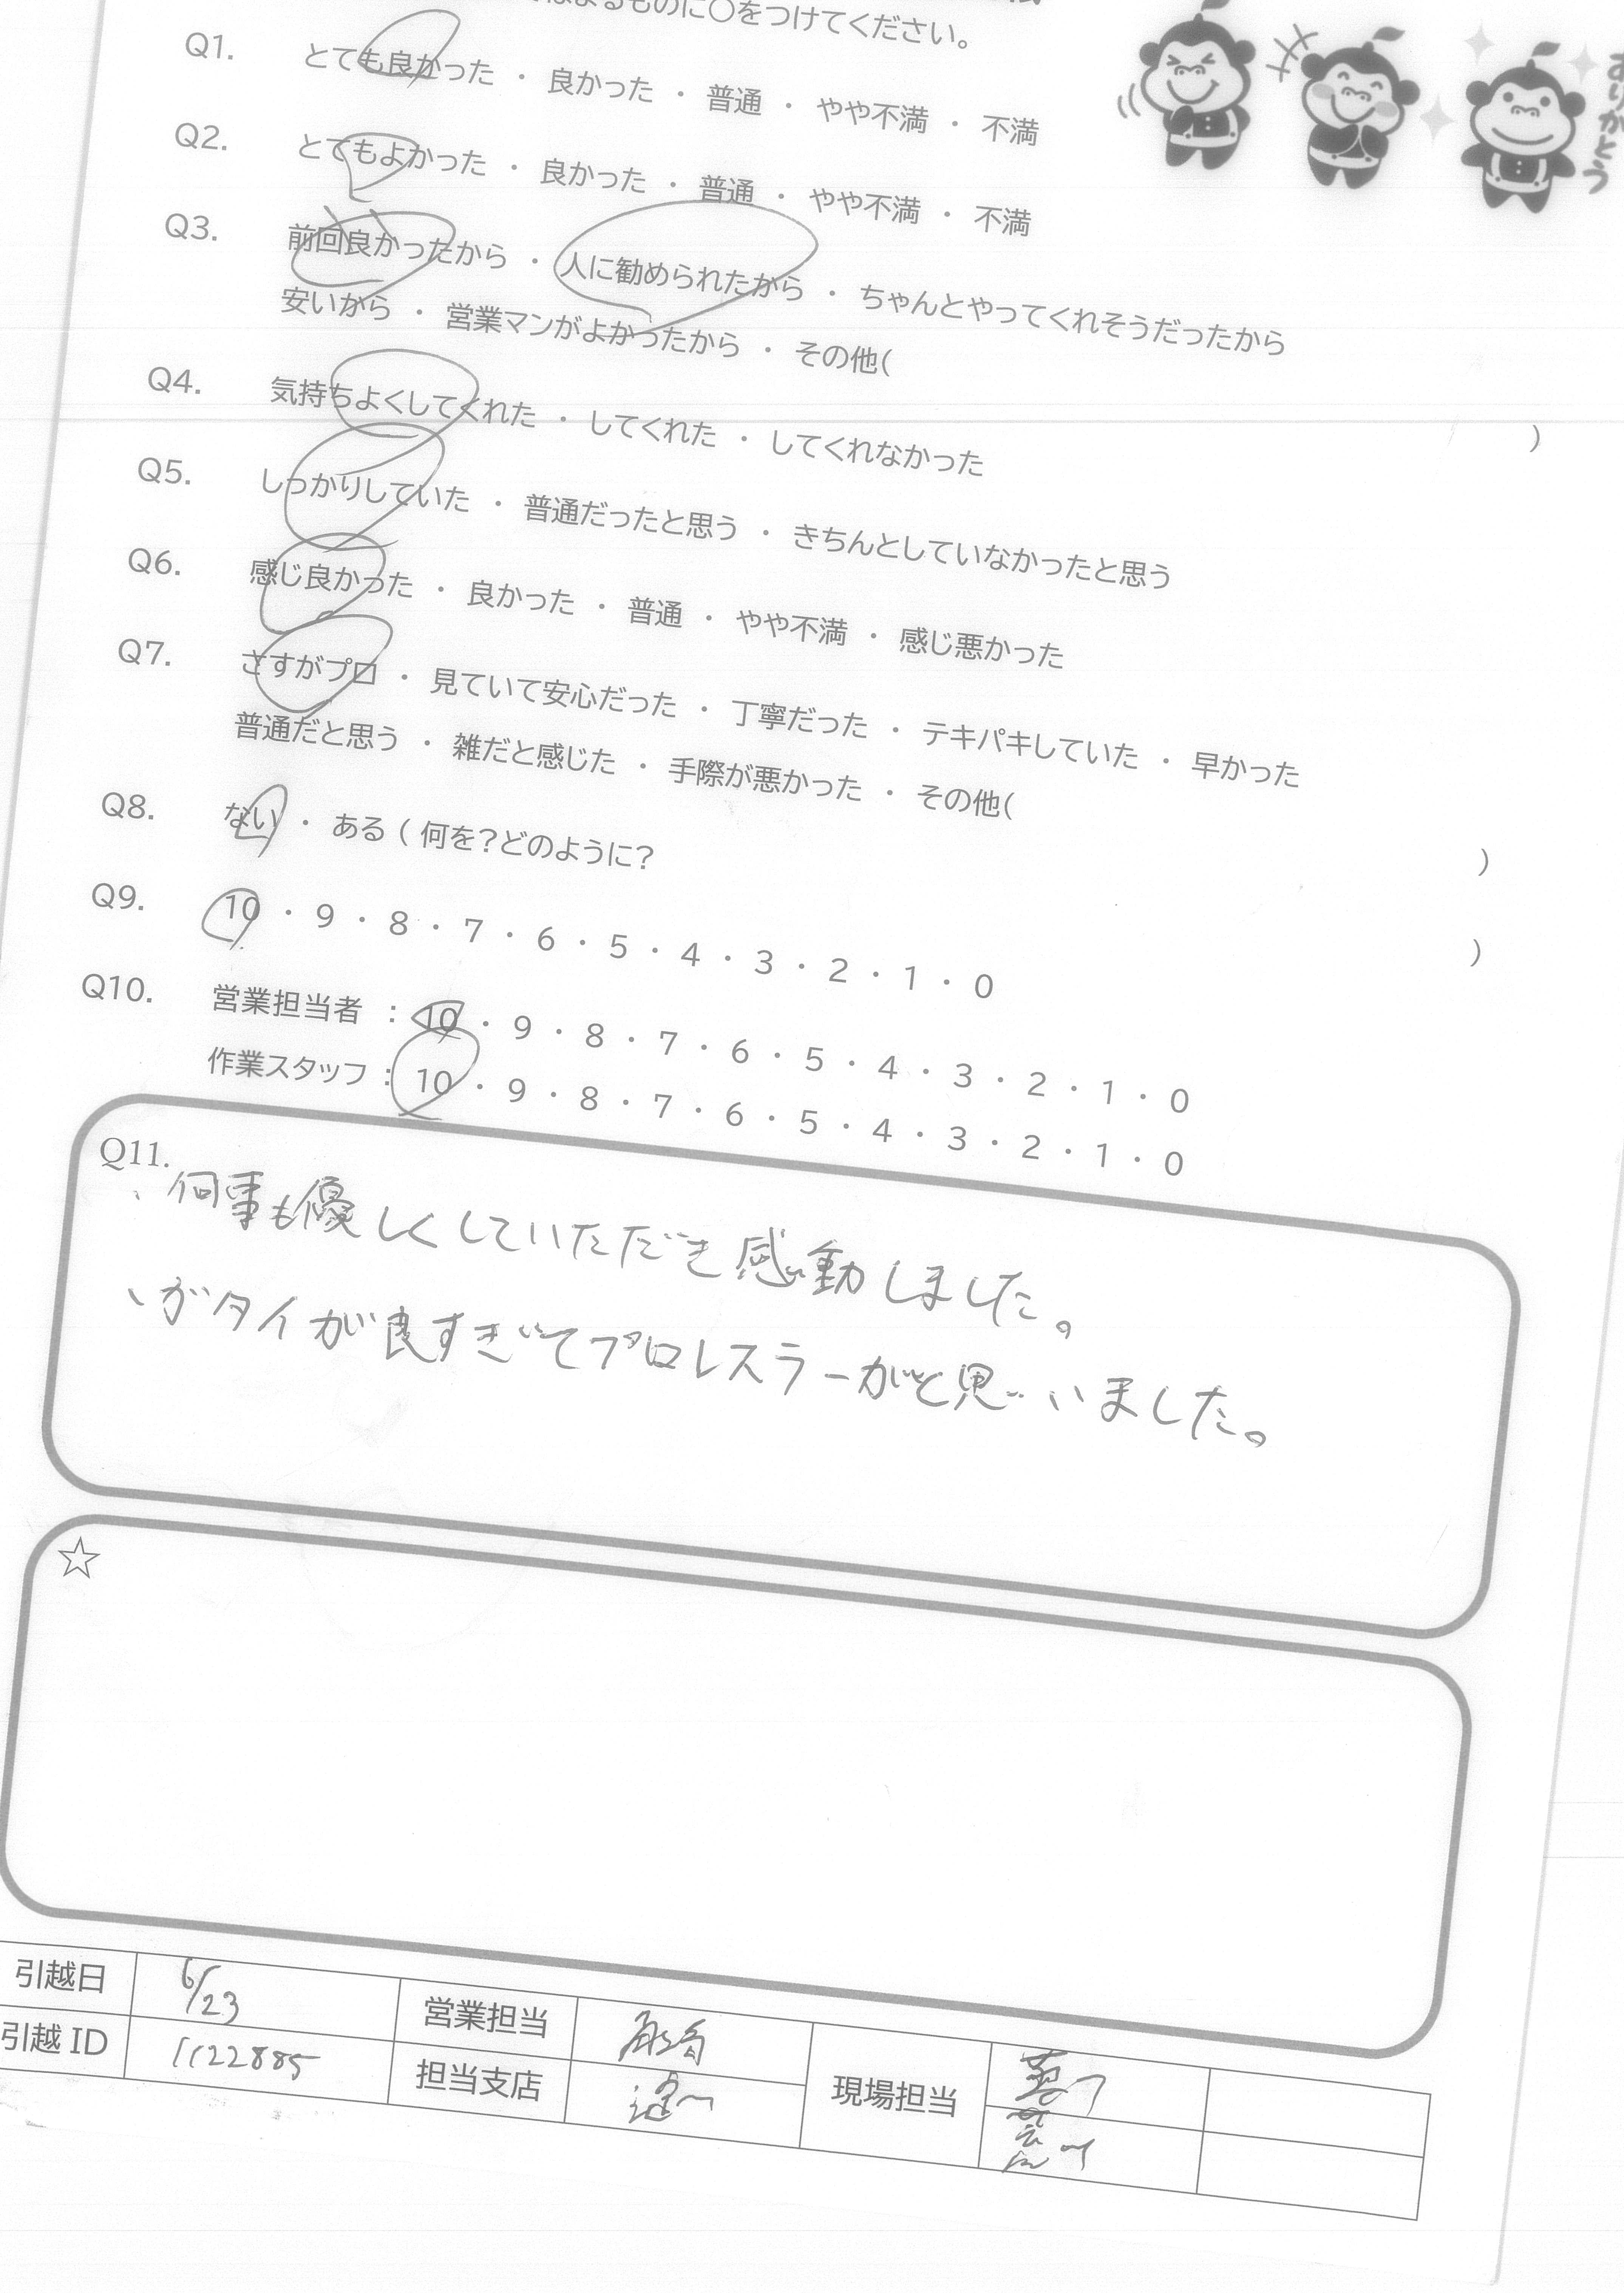 まるものに〇をつけてください。
ありがとう
Q1. とても良かった ・ 良かった ・ 普通 ・ やや不満 ・ 不満
Q2. とてもよかった ・ 良かった ・ 普通 ・ やや不満 ・ 不満
Q3. 前回良かったから ・ 人に勧められたから ・ ちゃんとやってくれそうだったから
安いから ・ 営業マンがよかったから ・ その他( )
Q4. 気持ちよくしてくれた ・ してくれた ・ してくれなかった
Q5. しっかりしていた ・ 普通だったと思う ・ きちんとしていなかったと思う
Q6. 感じ良かった ・ 良かった ・ 普通 ・ やや不満 ・ 感じ悪かった
Q7. さすがプロ ・ 見ていて安心だった ・ 丁寧だった ・ テキパキしていた ・ 早かった
普通だと思う ・ 雑だと感じた ・ 手際が悪かった ・ その他( )
Q8. ない ・ ある ( 何を?どのように? )
Q9. 10 ・ 9 ・ 8 ・ 7 ・ 6 ・ 5 ・ 4 ・ 3 ・ 2 ・ 1 ・ 0
Q10. 営業担当者 : 10 ・ 9 ・ 8 ・ 7 ・ 6 ・ 5 ・ 4 ・ 3 ・ 2 ・ 1 ・ 0
作業スタッフ : 10 ・ 9 ・ 8 ・ 7 ・ 6 ・ 5 ・ 4 ・ 3 ・ 2 ・ 1 ・ 0
Q11.
、何事も優しくしていただき感動しました。
、ガタイが良すぎてプロレスラーがと思いました。
☆
引越日 6/23 営業担当
引越 ID 1122885 担当支店 現場担当